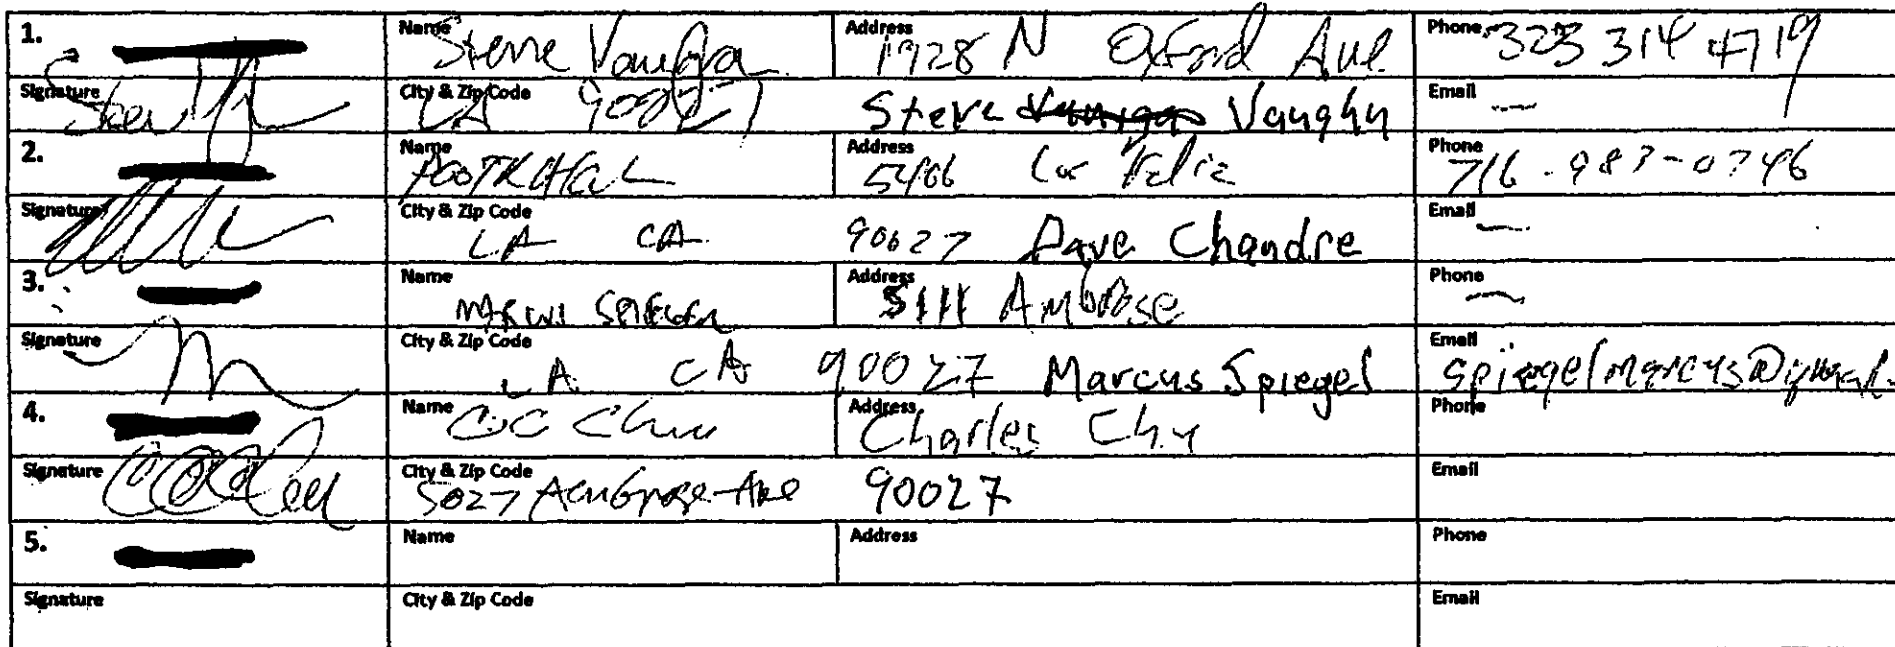 1. Name Steve Vaughn Address 1928 N Oxford Ave Phone 323 314 4719
Signature City & Zip Code LA 90027 Steve Vaughn Email —
2. Name Address 5406 Los Feliz Phone 716-983-0746
Signature City & Zip Code LA CA 90027 Dave Chandre Email —
3. Name Marcus Spiegel Address 5111 Ambrose Phone —
Signature City & Zip Code LA CA 90027 Marcus Spiegel Email
4. Name CC Chu Address Charles Chu Phone
Signature City & Zip Code 5027 Ambrose Ave 90027 Email
5. Name Address Phone
Signature City & Zip Code Email